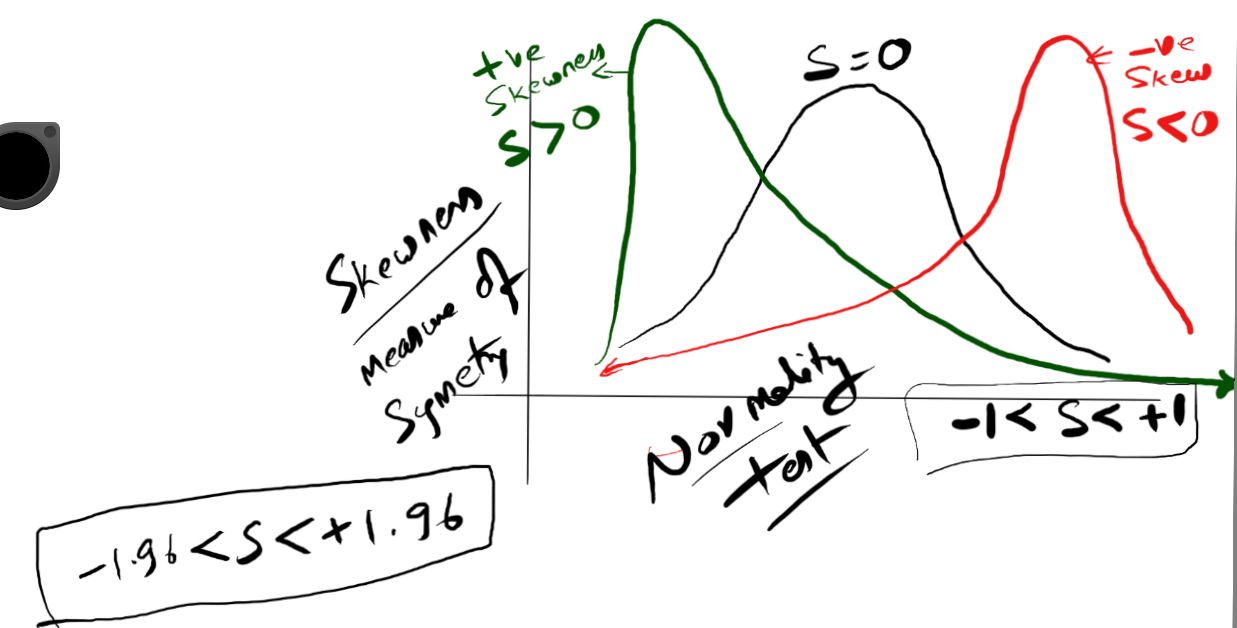 +ve
Skewness
S>0
S=0
-ve
Skew
S<0
Skewness
Measure of
Symetry
Normality
test
-1< S< +1
-1.96 <S< +1.96